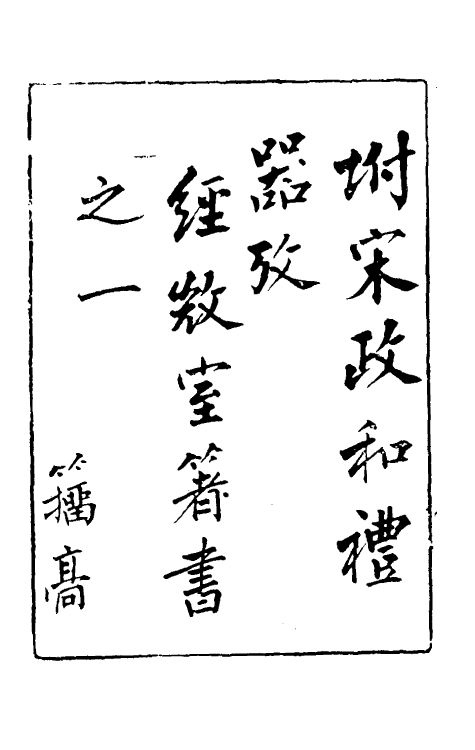 坿宋政和禮
器攷
經𢼸室箸書
之一
籀髙